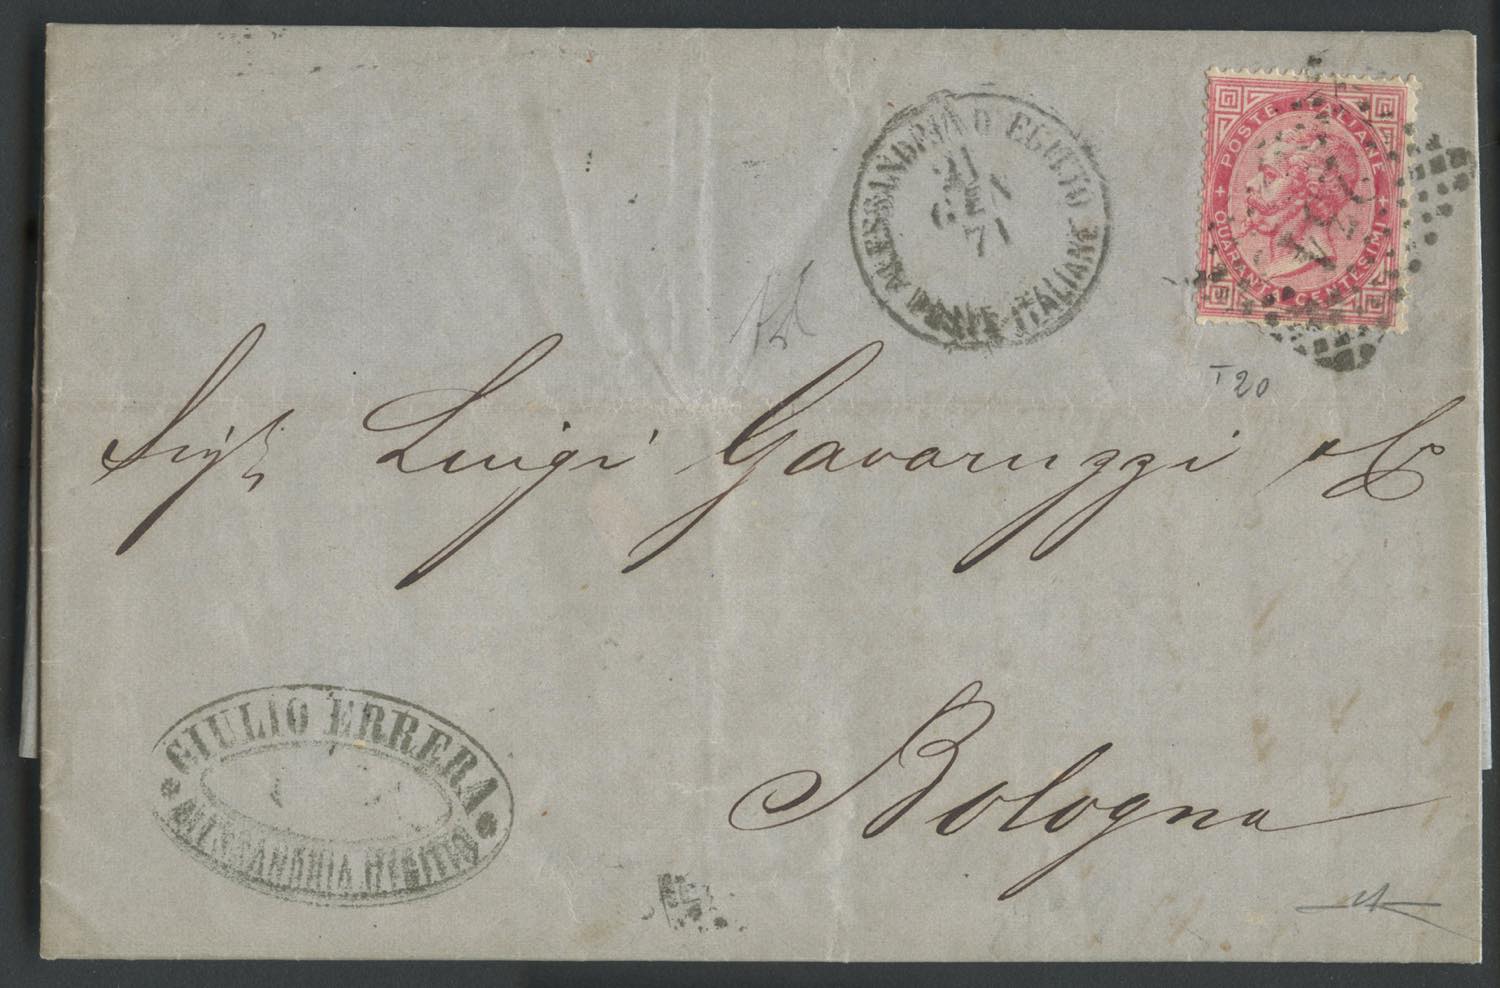 ALESSANDRIA D'EGITTO
21
GEN
71
POSTE ITALIANE
POSTE ITALIANE
QUARANTA CENTESIMI
234
T 20
Sigri Luigi Gavaruzzi & Co
Bologna
GIULIO ERRERA
ALESSANDRIA EGITTO